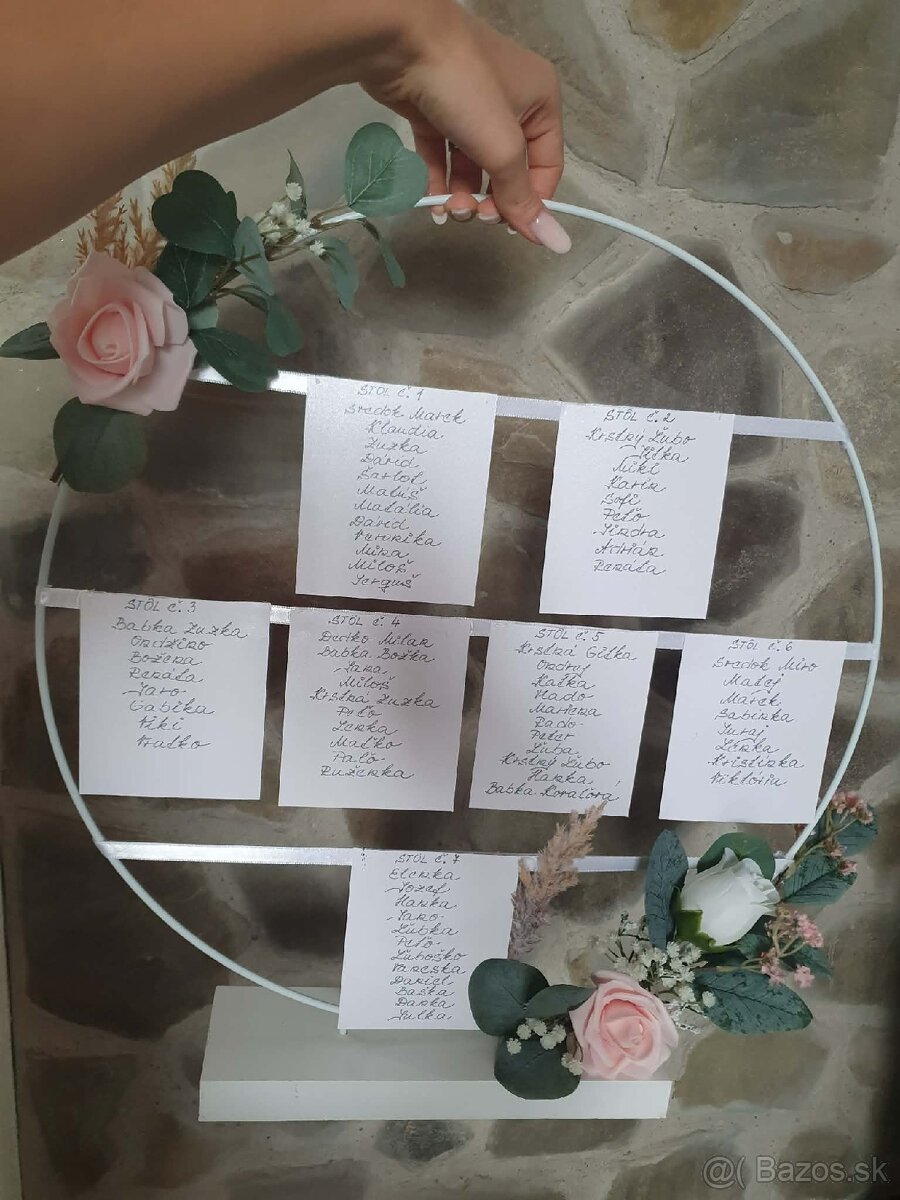 STÔL č. 1
Svedok Marek
Klaudia
Zuzka
Dávid
Šarlot
Matúš
Natália
Dávid
Veronika
Mira
Miloš
Serguš
STÔL č. 2
Krstný Ľubo
Jitka
Miki
Karin
Sofi
Peťo
Jindra
Adrián
Renáta
STÔL č. 3
Babka Zuzka
Ondzino
Božena
Renáta
Jaro
Gabika
Viki
Vratko
STÔL č. 4
Dedko Milan
Babka Božka
Jana
Miloš
Krstná Zuzka
Peťo
Lenka
Maťko
Paľo
Ruženka
STÔL č. 5
Krstná Gitka
Ondrej
Katka
Vlado
Martina
Rado
Peter
Ľuba
Krstný Ľubo
Hanka
Babka Kovaľová
STÔL č. 6
Svedok Miro
Matej
Marek
Sabinka
Juraj
Lenka
Kristínka
Viktória
STÔL č. 7
Elenka
Jozef
Hanka
Jano
Ľubka
Peťo
Ľuboško
Vaneska
Daniel
Baška
Danka
Julka
@( Bazos.sk